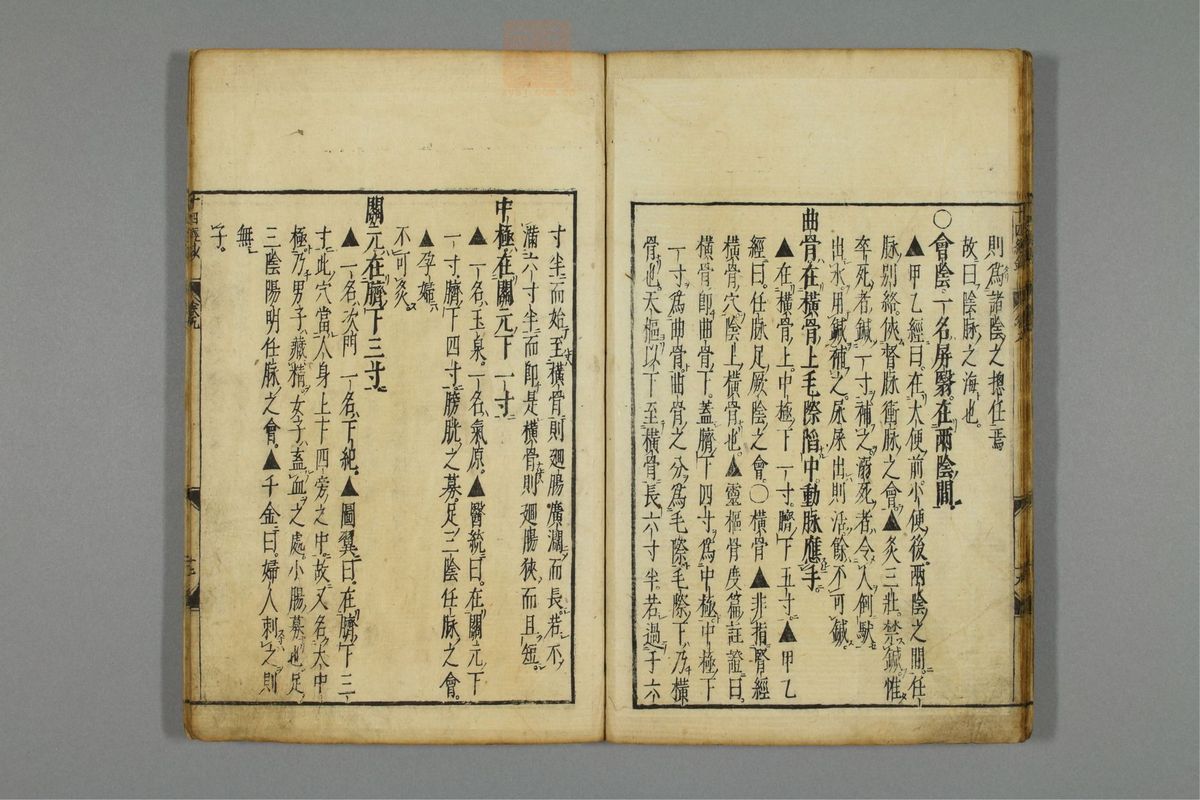 則爲諸陰之揔任焉
故曰陰脉之海也。
○會陰一名屏翳在兩陰間
▲甲乙經曰。在大便前小便後。兩陰之間。任
脉別絡。俠督脉衝脉之會▲灸三壯。禁鍼。惟
卒死者。鍼一寸補之。溺死者。令人倒馱
出水。用鍼補之。尿屎出則活。餘不可鍼
曲骨在橫骨上毛際陷中。動脉應手。
▲在橫骨上。中極下一寸。臍下五寸▲甲乙
經曰。任脉足厥陰之會。○橫骨▲非指腎經
橫骨穴。陰上橫骨也。▲靈樞骨度篇註證曰。
橫骨即曲骨下。蓋臍下四寸爲中極。中極下
一寸爲曲骨。曲骨之分爲毛際。毛際下乃橫
骨也。天樞以下至橫骨。長六寸半。若過于六
寸半。而始至橫骨。則廻腸廣濶而長。若不
滿六寸半。而即是橫骨。則廻腸狹而且短。
中極在關元下一寸
▲一名玉泉。一名氣原。▲醫統曰。在關元下
一寸。臍下四寸。膀胱之募。足三陰任脉之會。
▲孕婦
不可灸
關元在臍下三寸
▲一名次門。一名下紀。▲圖翼曰。在臍下三
寸。此穴當人身上下四旁之中。故又名大中
極。乃男子藏精。女子畜血之處。小腸募也。足
三陰陽明任脉之會。▲千金曰。婦人刺之則
無
子。